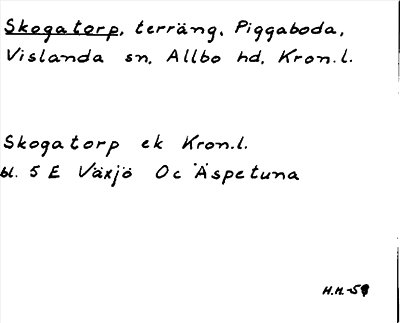 Skogatorp, terräng, Piggaboda,
Vislanda sn, Allbo hd, Kron.l.
Skogatorp ek Kron.l.
bl. 5 E Växjö Oc Äspetuna
H.M.-59